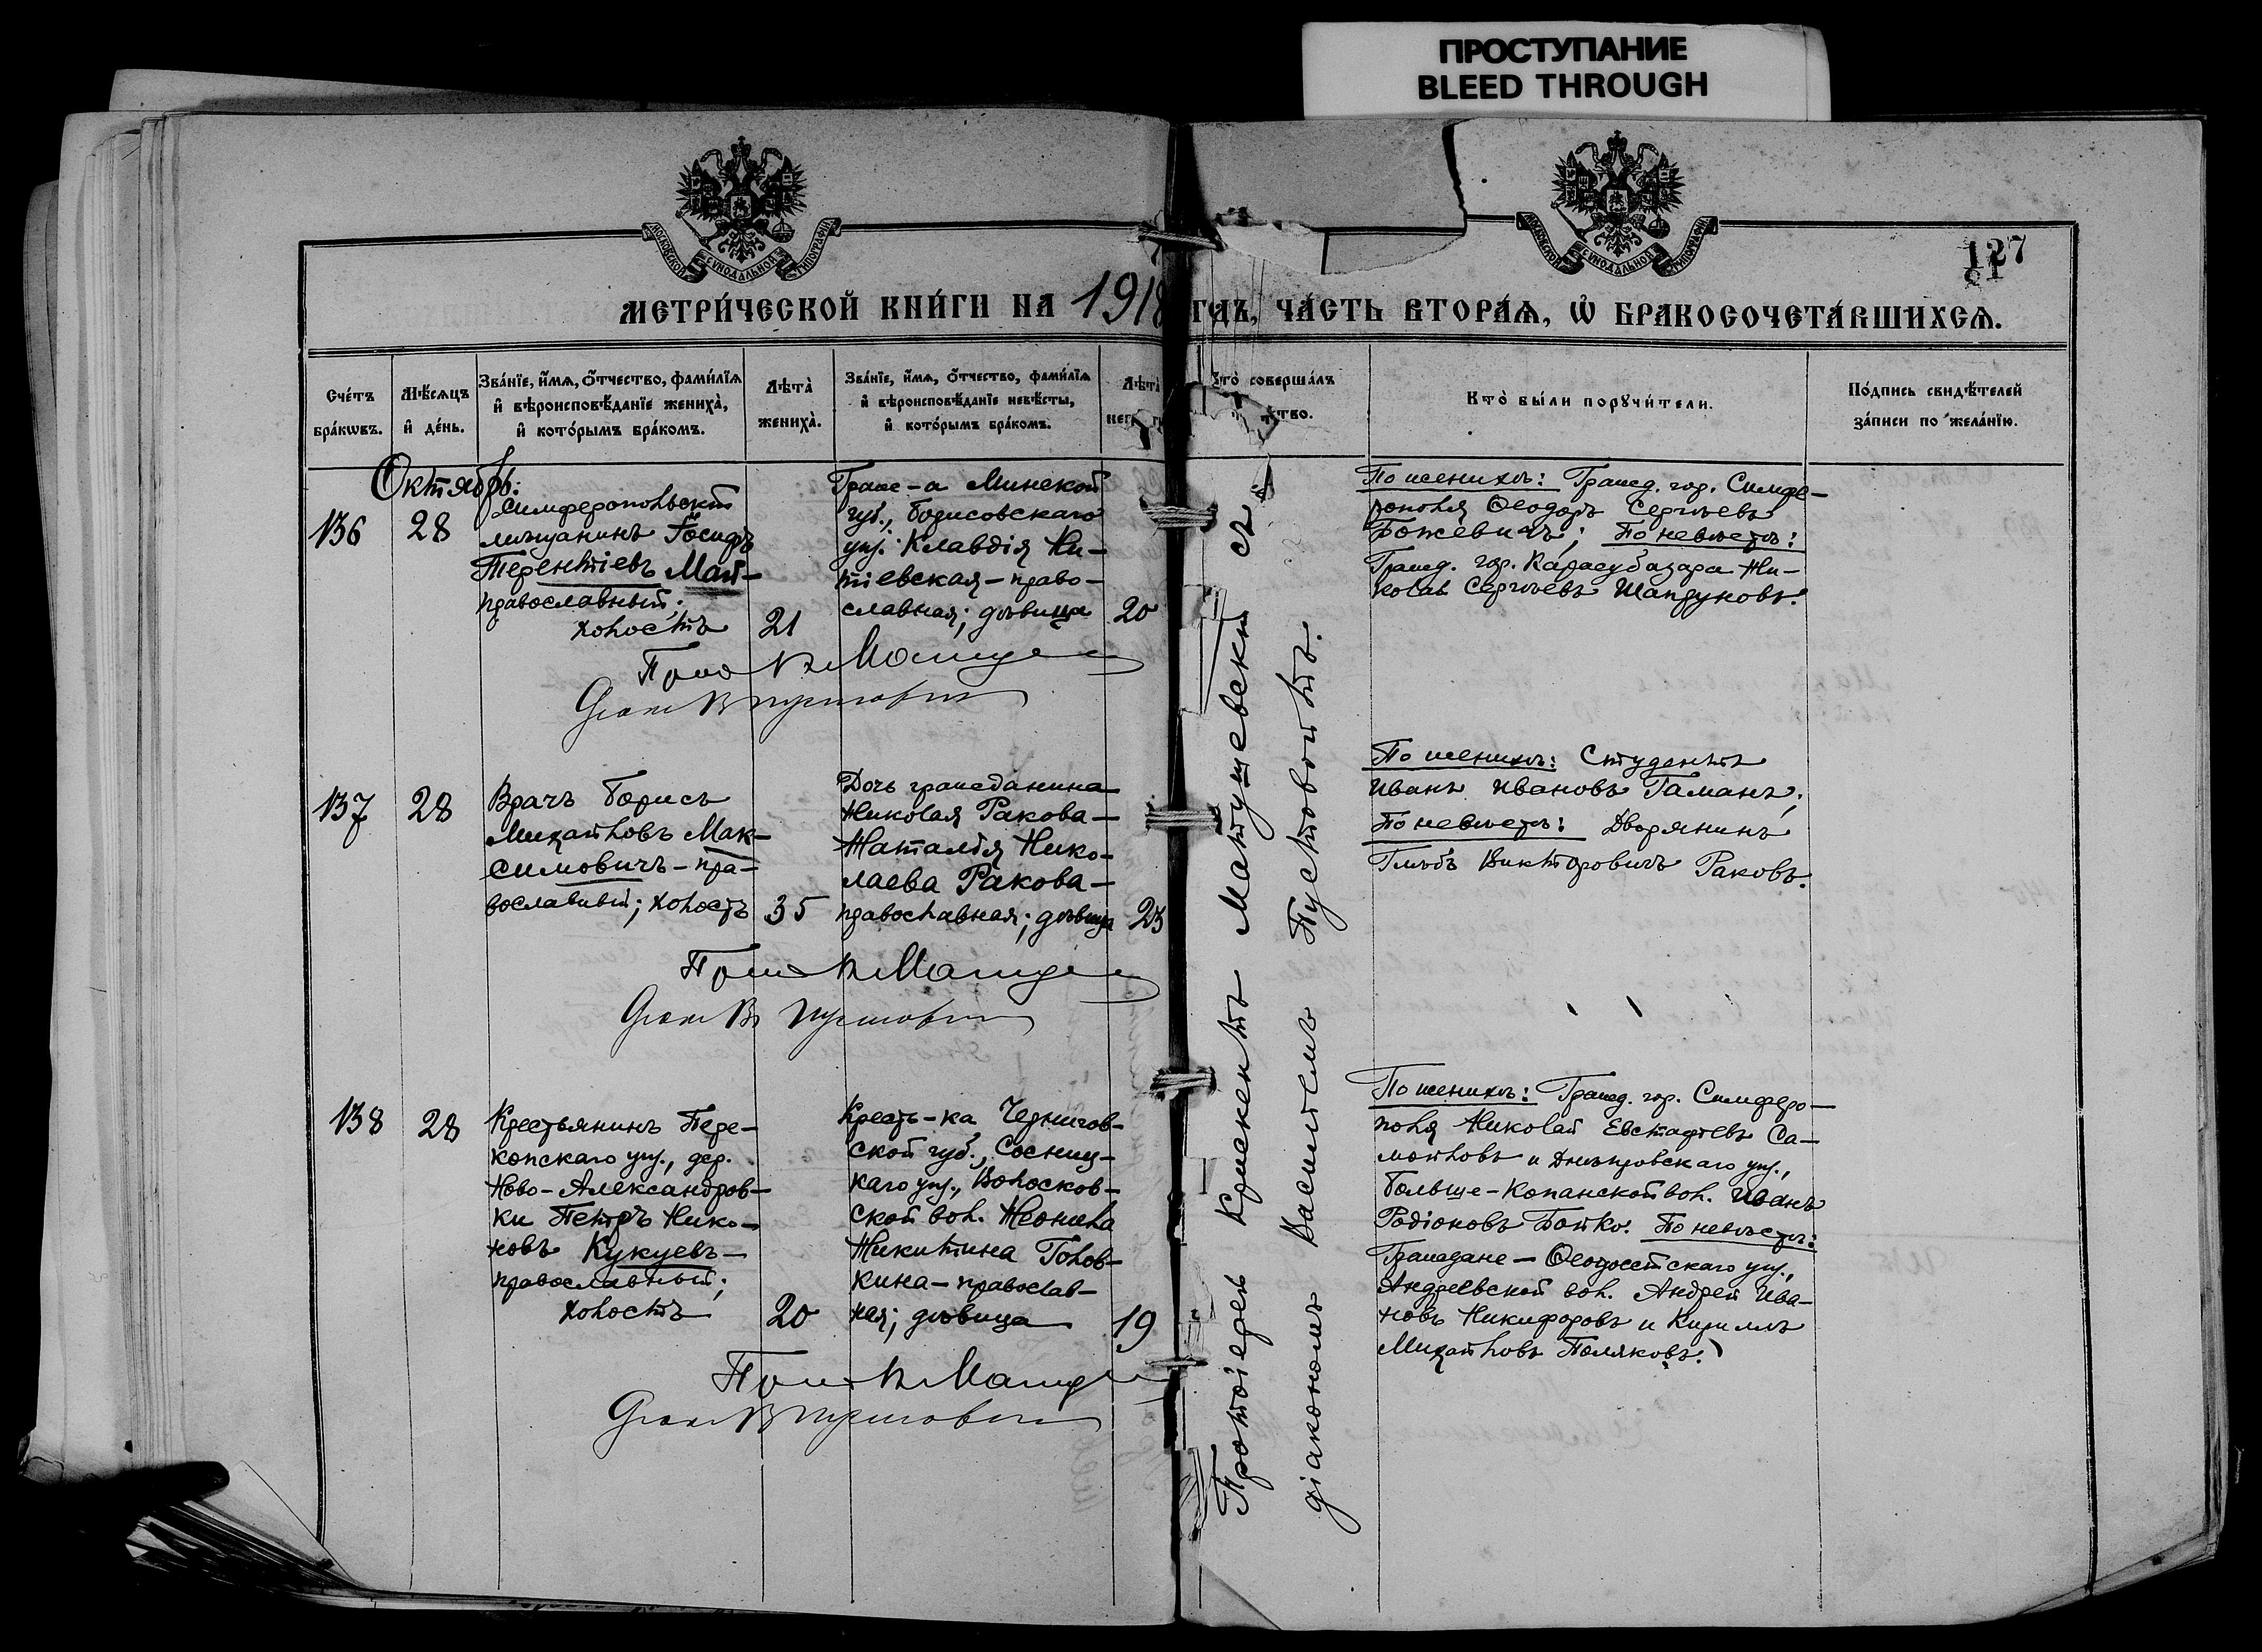 ПРОСТУПАНИЕ
BLEED THROUGH
МОСКОВСКОЙ СѴНОДАЛЬНОЙ ТИПОГРАФІИ
МОСКОВСКОЙ СѴНОДАЛЬНОЙ ТИПОГРАФІИ
127
81
МЕТРИ́ЧЕСКОЙ КНИ́ГИ НА 1918 ГОДЪ, ЧА́СТЬ ВТОРА́Я, Ѡ БРАКОСОЧЕТА́ВШИХСЯ.
Сче́тъ
бра́кѡвъ.
Мѣ́сяцъ
и де́нь.
Зва́нїе, и́мя, о́тчество, фами́лїя
и вѣроисповѣ́данїе жениха̀,
и кото́рымъ бра́комъ.
Лѣта̀
жениха̀.
Зва́нїе, и́мя, о́тчество, фами́лїя
и вѣроисповѣ́данїе невѣ́сты,
и кото́рымъ бра́комъ.
Лѣта̀
Кто̀ соверша́лъ
Кто̀ бы́ли порꙋчи́тели.
По́дпись свидѣ́телей
за́писи по жела́нїю.
Октябрь:
136
28
Симферопольскій
мѣщанинъ Іосифъ
Терентіевъ Май–
православный;
холостъ
21
Гражд–а Минской
губ., Борисовскаго
уѣз. Клавдія Ни–
тіевская – право–
славная; дѣвица
20
По женихѣ: Гражд. гор. Симфе–
рополя Ѳеодоръ Сергѣевъ
Божевичъ; По невѣстѣ:
Гражд. гор. Карасубазара Ни–
колай Сергѣевъ Шапруновъ.
137
28
Врачъ Борисъ
Михайловъ Мак–
симовичъ – пра–
вославный; холостъ
35
Дочь гражданина
Николая Ракова –
Наталія Нико–
лаева Ракова –
православная; дѣвица
23
По женихѣ: Студентъ
Иванъ Ивановъ Гаманъ;
По невѣстѣ: Дворянинъ
Глѣбъ Викторовичъ Раковъ.
138
28
Крестьянинъ Пере–
копскаго уѣз., дер.
Ново-Александров–
ки Петръ Нико–
новъ Кукуевъ –
православный;
холостъ
20
Кресть–ка Чернигов–
ской губ., Сосниц–
каго уѣз., Волосков–
ской вол. Неонила
Никитина Голов–
кина – православ–
ная; дѣвица
19
По женихѣ: Гражд. гор. Симферо–
поля Николай Евстафіевъ Са–
мойловъ и Днѣпровскаго уѣз.,
Больше-Копанской вол. Иванъ
Родіоновъ Бойко. По невѣстѣ:
Граждане – Ѳеодосійскаго уѣз.,
Андреевской вол. Андрей Ива–
новъ Никифоровъ и Кириллъ
Михайловъ Поляковъ.
Протоіерей Климентъ Матушевскій съ
діакономъ Василіемъ Пустовойтъ.